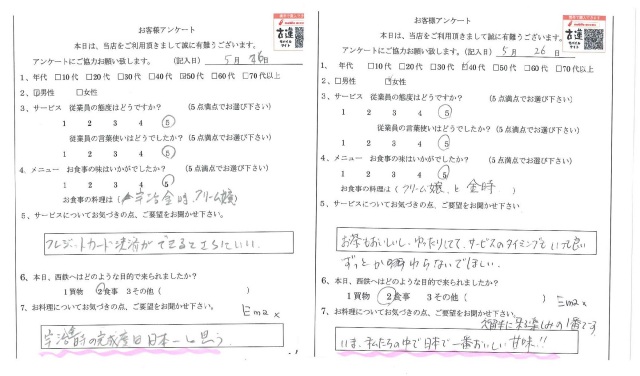 お客様アンケート
本日は、当店をご利用頂きまして誠に有難うございます。
アンケートにご協力お願い致します。 (記入日) 5月 26日
1、年代 □10代 □20代 □30代 □40代 □50代 □60代 □70代以上
2、□男性 □女性
3、サービス 従業員の態度はどうですか? (5点満点でお選び下さい)
1 2 3 4 5
従業員の言葉使いはどうでしたか? (5点満点でお選び下さい)
1 2 3 4 5
4、メニュー お食事の味はいかがでしたか? (5点満点でお選び下さい)
1 2 3 4 5
お食事の料理は ( 宇治金時、クリーム嬢)
5、サービスについてお気づきの点、ご要望をお聞かせ下さい。
クレジットカード決済ができるとさらにいい。
6、本日、西鉄へはどのような目的で来られましたか?
1買物 2食事 3その他 ( )
7、お料理についてお気づきの点、ご要望をお聞かせ下さい。
Emax
の完成度は日本一と思う。
古蓮
モバイル
サイト
お客様アンケート
本日は、当店をご利用頂きまして誠に有難うございます。
アンケートにご協力お願い致します。 (記入日) 5月 26日
1、年代 □10代 □20代 □30代 □40代 □50代 □60代 □70代以上
2、□男性 □女性
3、サービス 従業員の態度はどうですか? (5点満点でお選び下さい)
1 2 3 4 5
従業員の言葉使いはどうでしたか? (5点満点でお選び下さい)
1 2 3 4 5
4、メニュー お食事の味はいかがでしたか? (5点満点でお選び下さい)
1 2 3 4 5
お食事の料理は (クリーム嬢 と 金時 )
5、サービスについてお気づきの点、ご要望をお聞かせ下さい。
お茶もおいしいし、ゆったりしてて、サービスのタイミングもいつも良い
ずっとかわらないでほしい。
6、本日、西鉄へはどのような目的で来られましたか?
1買物 2食事 3その他 ( )
Emax
7、お料理についてお気づきの点、ご要望をお聞かせ下さい。
久留米に来る楽しみの1番です
いま、私たちの中で日本で一番おいしい甘味!!
古蓮
モバイル
サイト